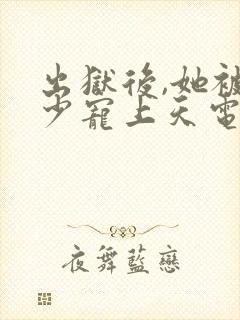 出獄後,她被
少寵上天電
夜舞藍戀